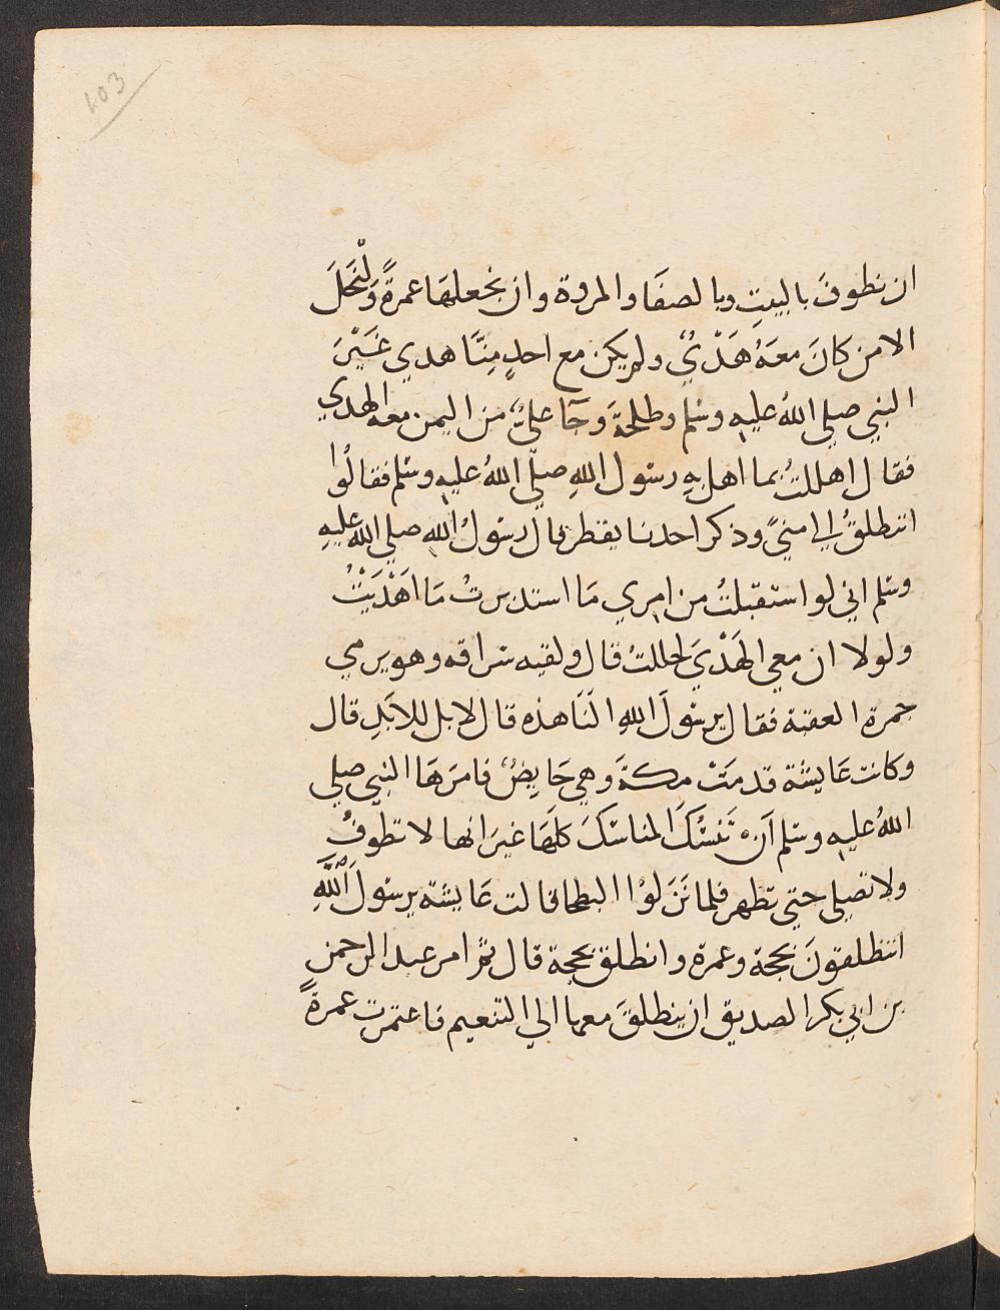 103
ان نطوفَ بالبيتِ وبالصفَا والمروة وان نجعلهَا عمرةً وَلْنَحَلَ
الا من كانَ معَهُ هَدْيٌ ولم يكن مع احدٍ مِنَّا هدي غَيْرَ
النبي صلي اللهُ عليهِ وسلم وطلحَةَ وَجَآ عليٌّ من اليمن معه الهدي
فقال اهللتُ بما اهل بِهِ رسول اللهِ صلّي اللهُ عليهِ وسلم فقالُوا
اننطلقُ الي مِنيً وذكر احدنا يقطر قال رسولُ اللهِ صلي اللهُ عليهِ
وسلم اني لو استقبلتُ من امري مَا استدبرتُ مَا اَهْدَيْتُ
ولولا ان معي الهَدْيَ لحللتُ قال ولقيه سراقه وهو يرمي
جمرة العقبة فقال يرسُولَ اللهِ الَنَا هذه قال لا بل للابَدِ قال
وكانت عَايشة قدمَتْ مكةَ وهي حَايِضٌ فامرَهَا النبي صلي
اللهُ عليهِ وسلم اَنْ تَنسُكَ المناسكَ كلهَا غيرَ انها لا تطوفُ
ولا تصلي حتي تطهر فلما نَزَلوُا البطحا قالت عَايشة يرسولَ اَللَّهِ
اتنطلقونَ بحجة وعمرة وانطلق بحجة قال ثم امر عبد الرحمن
بن ابي بكر الصديق ان ينطلقَ معها الي التنعيم فاعتمرت عمرةً